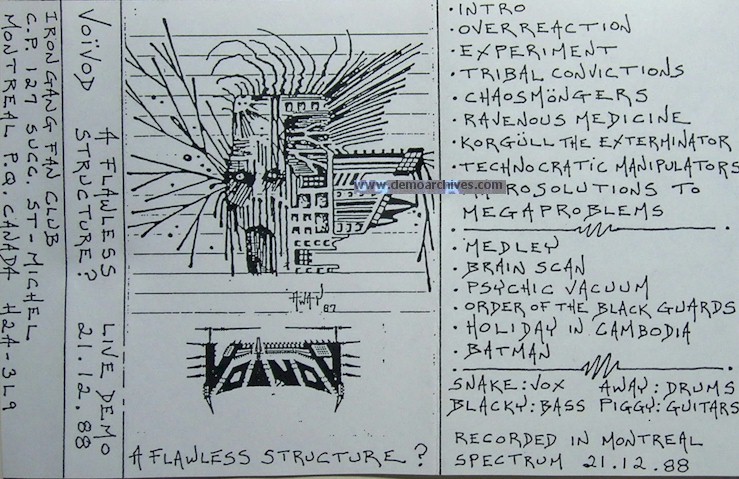 IRON GANG FAN CLUB
C.P. 127 SUCC. ST-MICHEL
MONTREAL P.Q. CANADA H2A-3L9
VOÏVOD A FLAWLESS STRUCTURE? LIVE DEMO 21.12.88
AWAY
87
VOIVOD
A FLAWLESS STRUCTURE?
· INTRO
· OVERREACTION
· EXPERIMENT
· TRIBAL CONVICTIONS
· CHAOSMÖNGERS
· RAVENOUS MEDICINE
· KORGÜLL THE EXTERMINATOR
· TECHNOCRATIC MANIPULATORS
www.demoarchives.com
ROSOLUTIONS TO
MEGAPROBLEMS
· MEDLEY
· BRAIN SCAN
· PSYCHIC VACUUM
· ORDER OF THE BLACK GUARDS
· HOLIDAY IN CAMBODIA
· BATMAN
SNAKE: VOX AWAY: DRUMS
BLACKY: BASS PIGGY: GUITARS
RECORDED IN MONTREAL
SPECTRUM 21.12.88